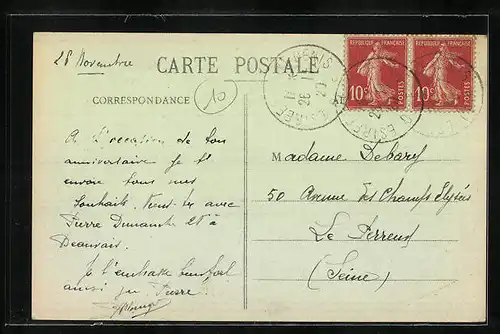 28 Novembre
CARTE POSTALE
CORRESPONDANCE
10
A l'occasion de ton
anniversaire je t'
envoie tous mes
souhaits. Viens avec
Pierre Dimanche à
Beauvais.
Je t'embrasse
ainsi que Pierre
RÉPUBLIQUE FRANÇAISE
10c
RÉPUBLIQUE FRANÇAISE
10c
Madame Debary
50 Avenue des Champs Elysées
Le Perreux
(Seine)